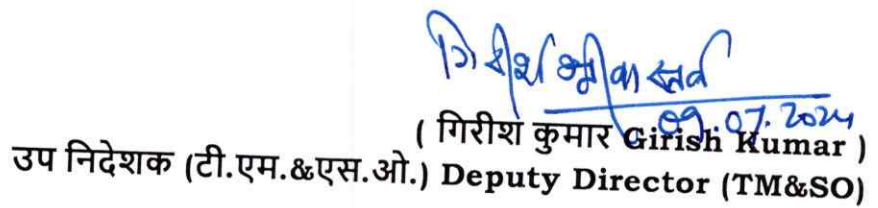 गिरीश श्रीवास्तव
09.07.2024
( गिरीश कुमार Girish Kumar )
उप निदेशक (टी.एम.&एस.ओ.) Deputy Director (TM&SO)